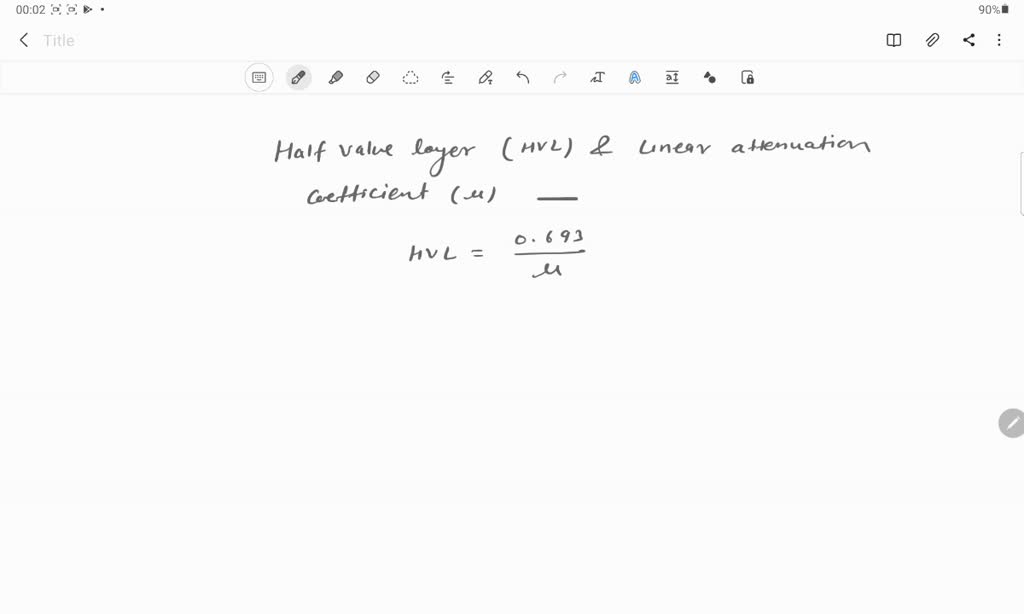 00:02
90%
Title
Half value layer (HVL) & Linear attenuation
coefficient (μ) —
HVL = 0.693 / μ